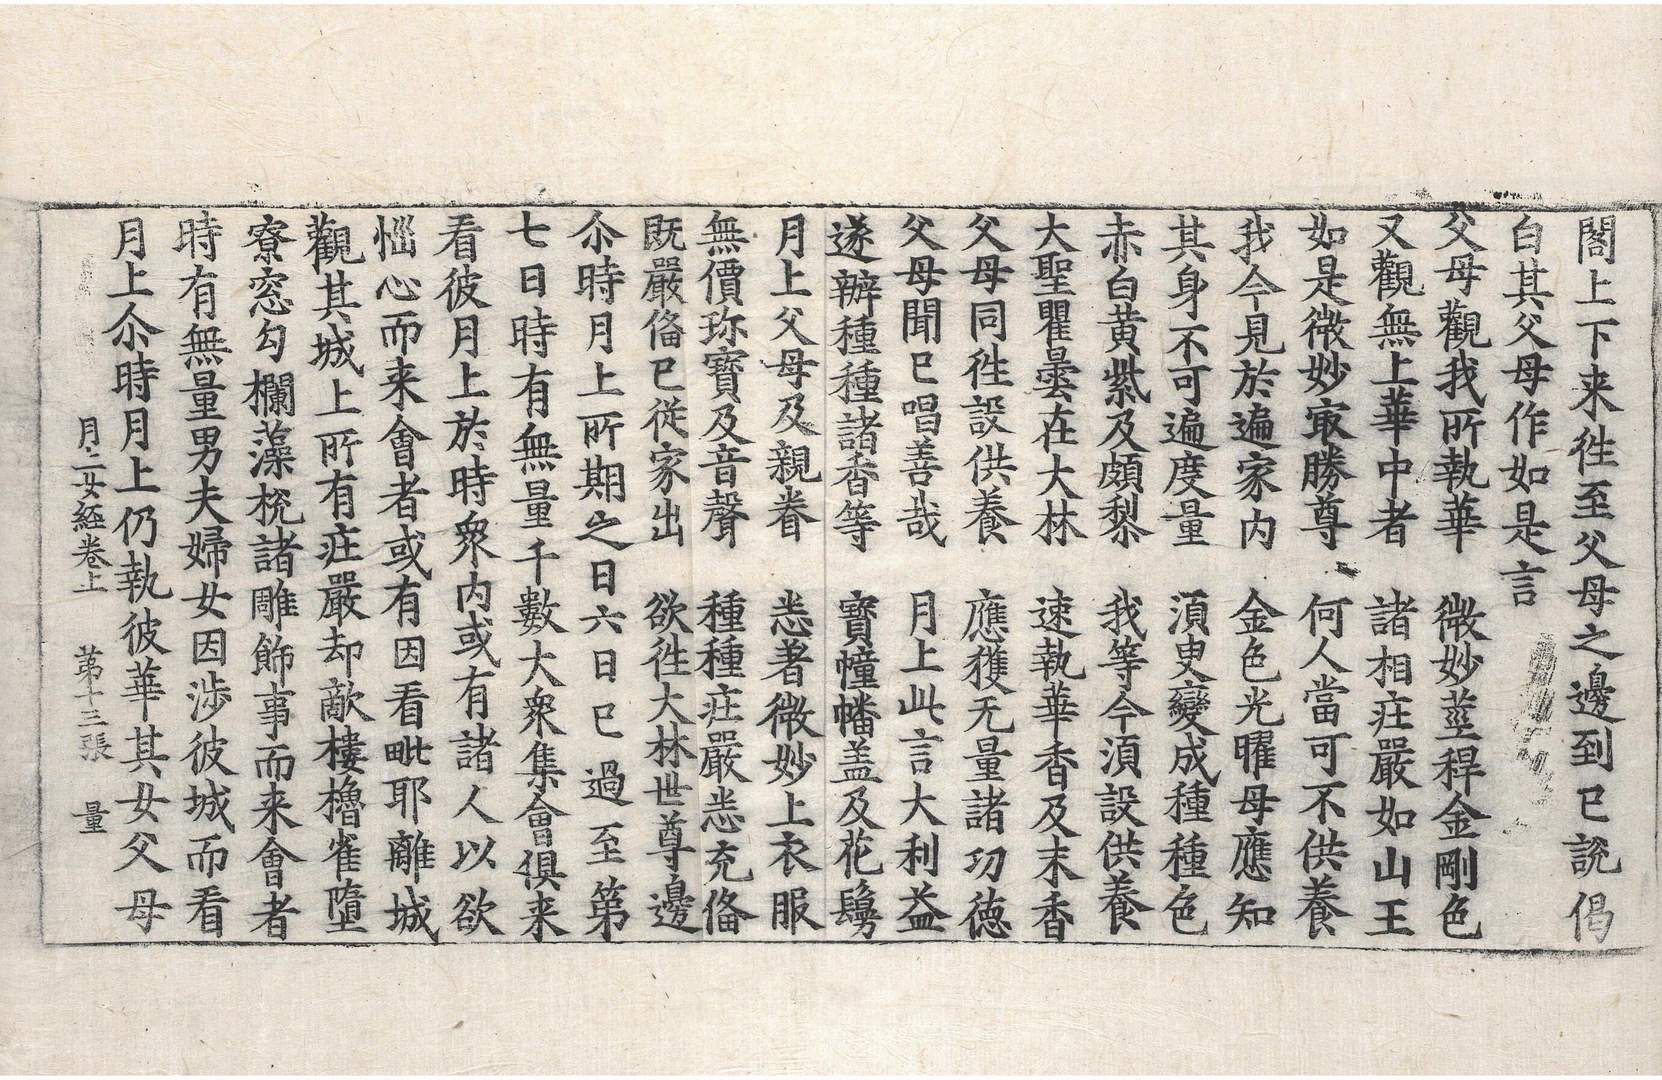 閣上下来徃至父母之邊到已說偈
白其父母作如是言
父母觀我所執華　微妙莖稈金剛色
又觀無上華中者　諸相莊嚴如山王
如是微妙㝡勝尊　何人當可不供養
我今見於遍家内　金色光曜母應知
其身不可遍度量　須臾變成種種色
赤白黄紫及頗黎　我等今須設供養
大聖瞿曇在大林　速執華香及末香
父母同徃設供養　應獲无量諸功徳
父母聞已唱善哉　月上此言大利益
遂辦種種諸香等　寶幢幡盖及花鬘
月上父母及親眷　悉著微妙上衣服
無價珎寶及音聲　種種莊嚴悉充俻
既嚴俻已従家出　欲徃大林世尊邊
尒時月上所期之日六日已過至第
七日時有無量千數大衆集會俱来
看彼月上於時衆内或有諸人以欲
惱心而来會者或有因看毗耶離城
觀其城上所有莊嚴却敵樓櫓雀墮
寮窓勾欄藻梲諸雕飾事而来會者
時有無量男夫婦女因涉彼城而看
月上尒時月上仍執彼華其女父母
月上女経卷上　第十三張　量